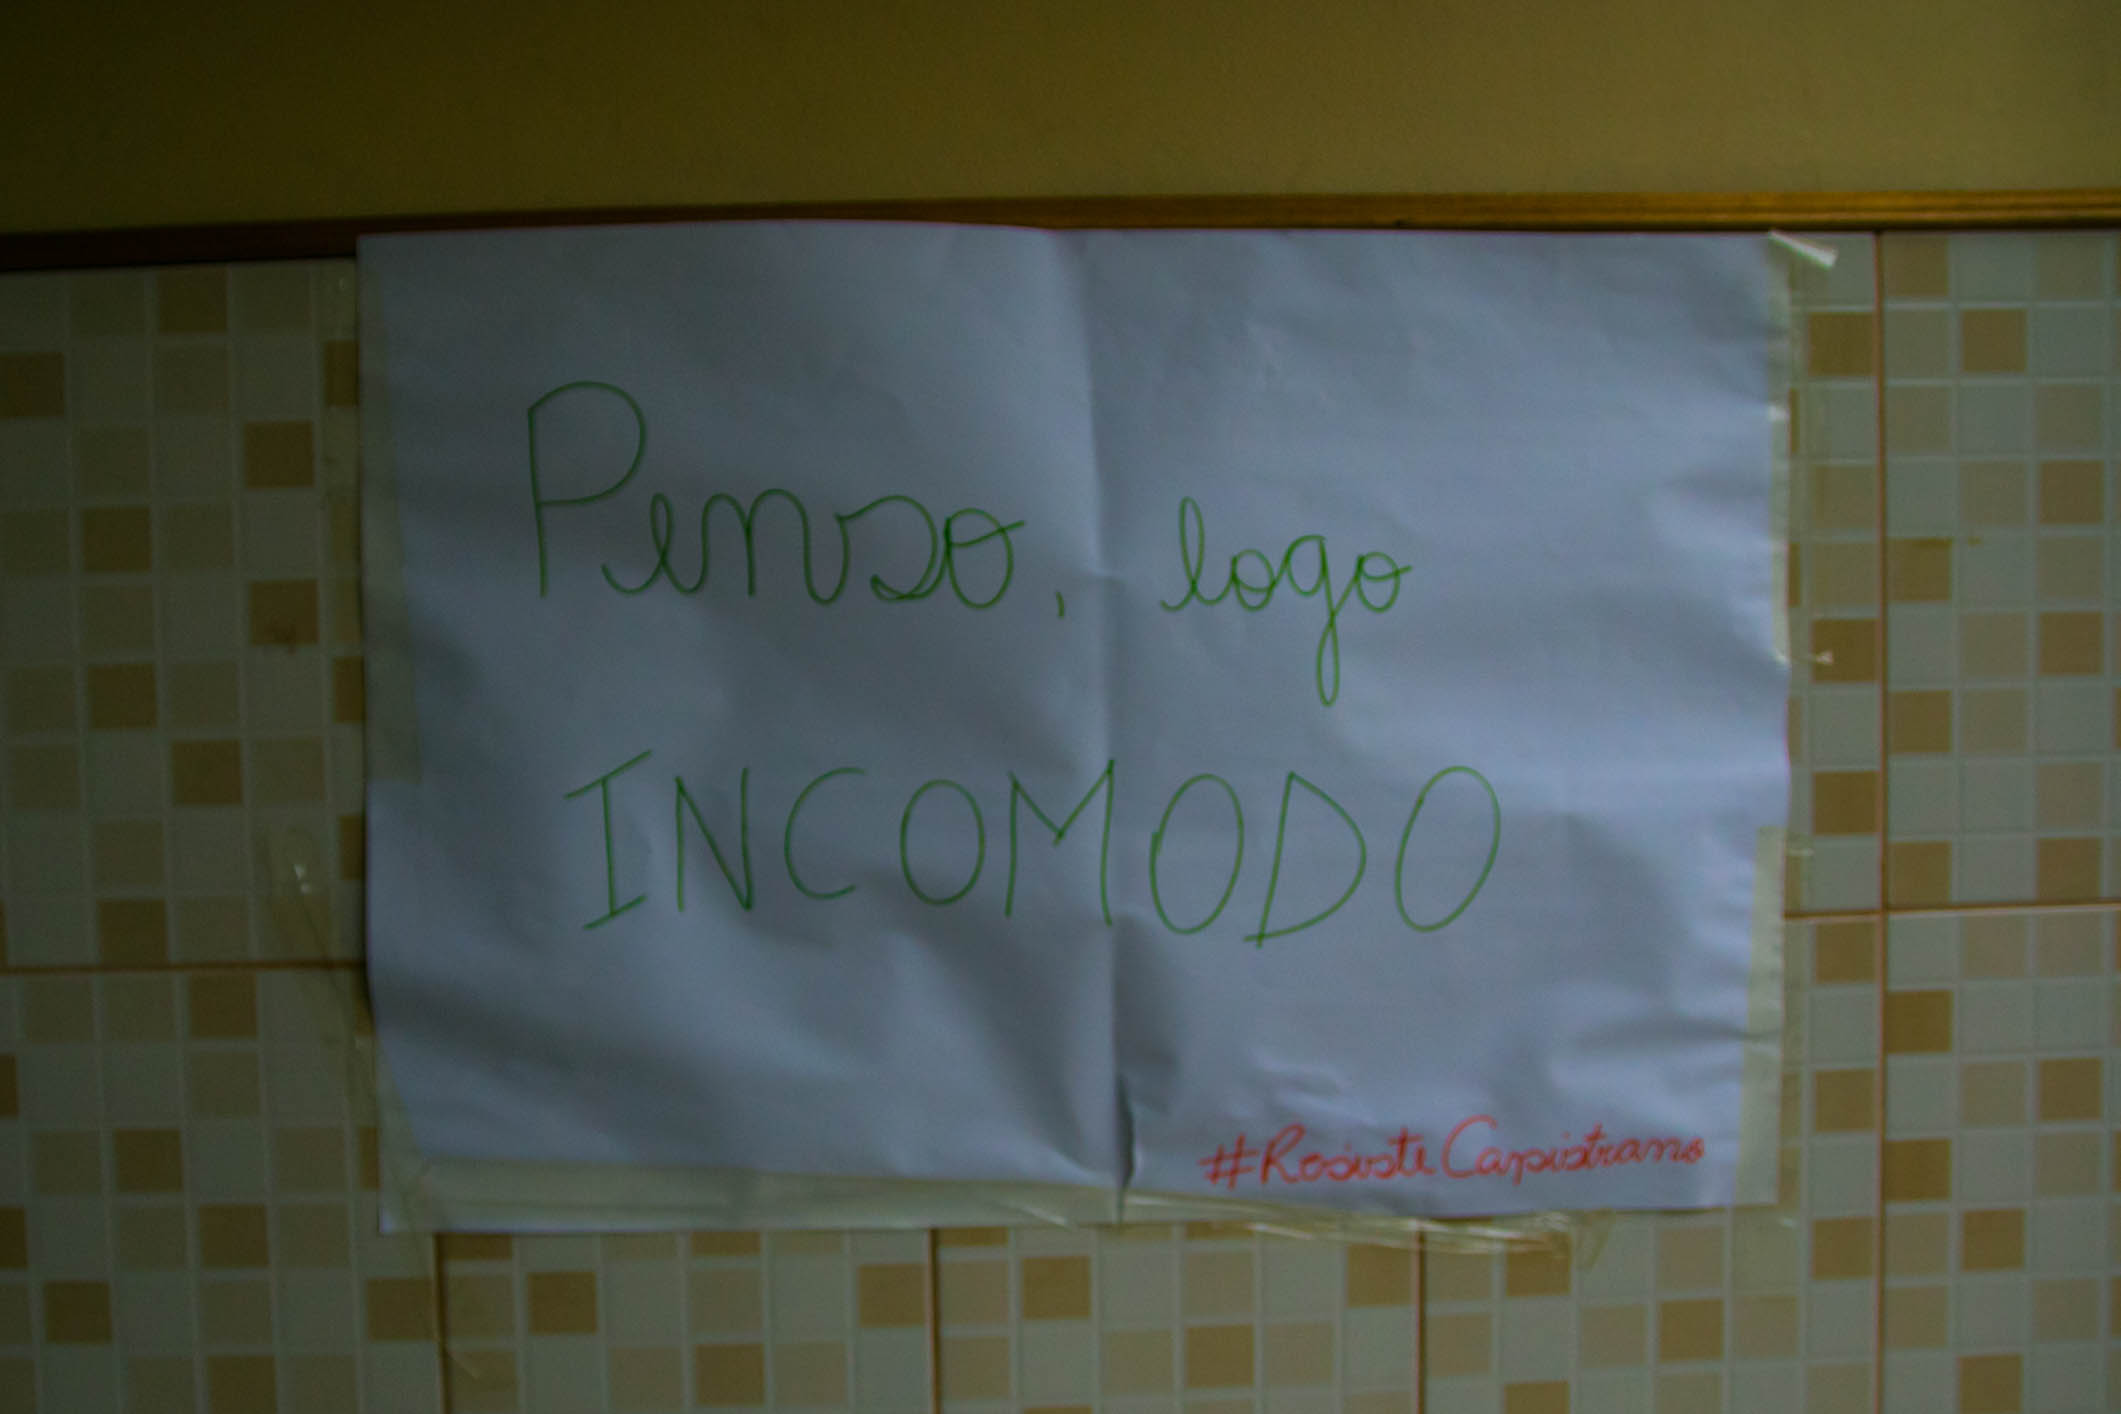 Penso, logo
INCOMODO
#ResisteCapistrano